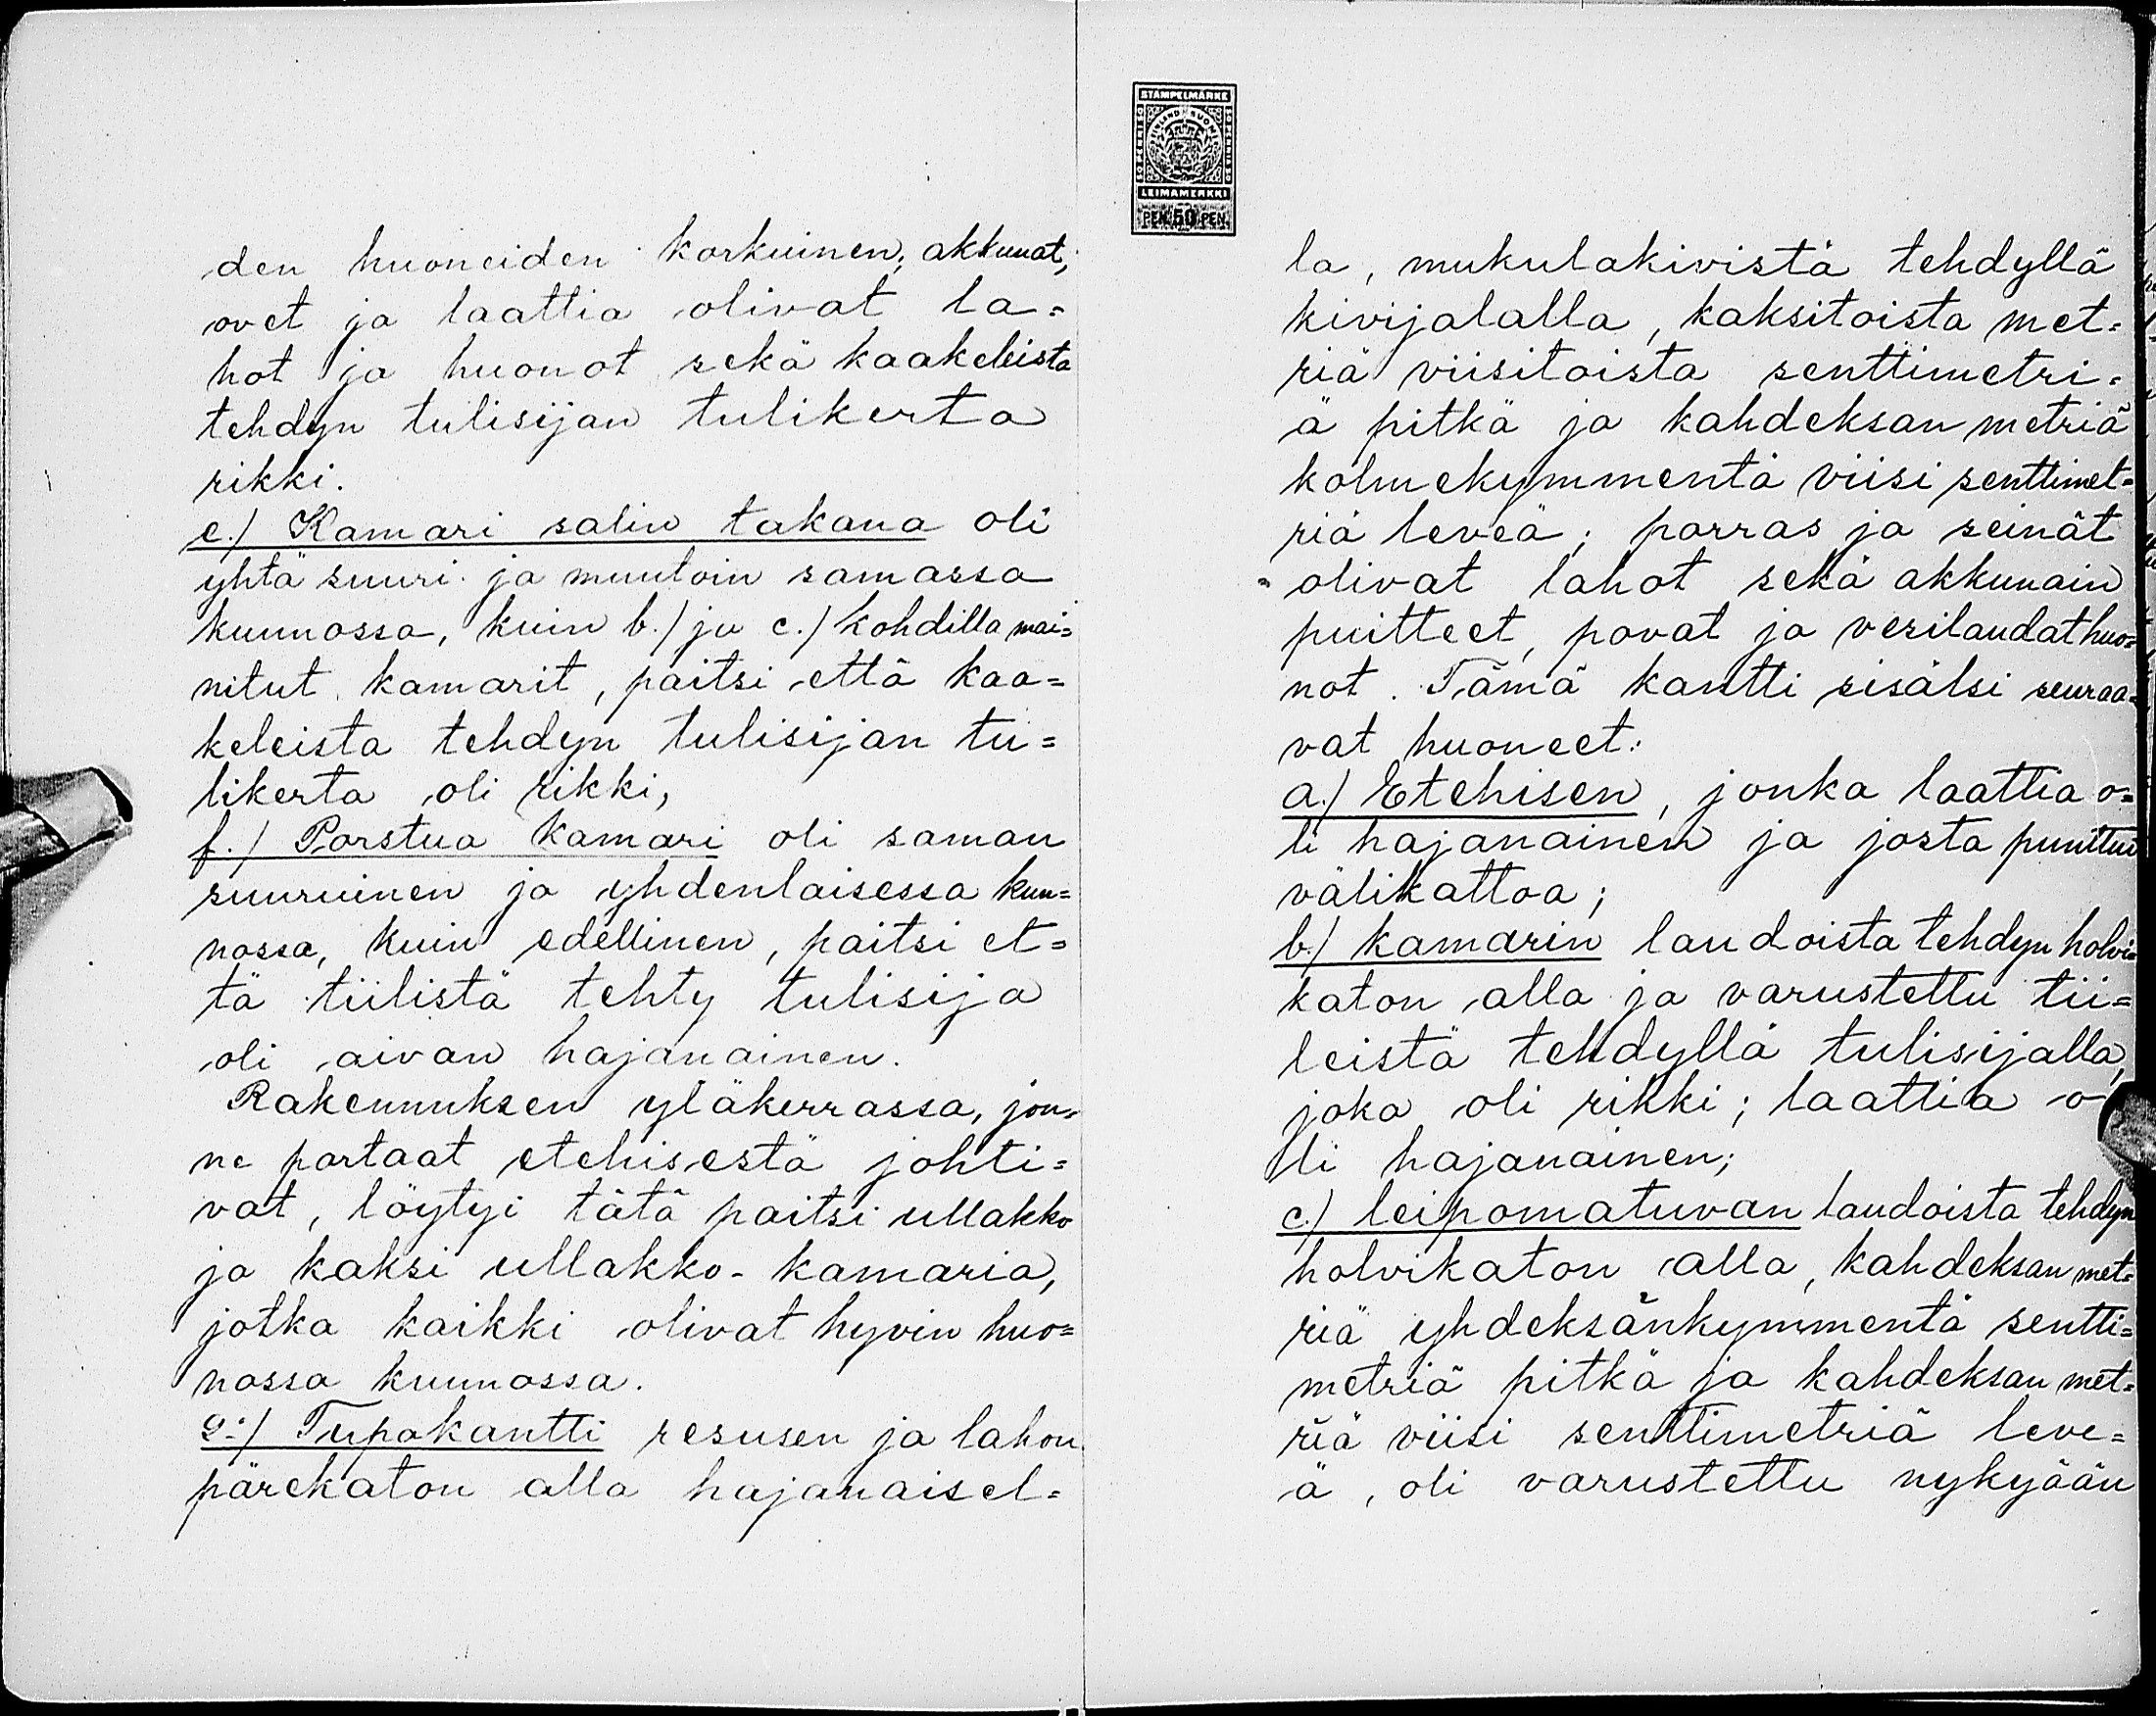 den huoneiden korkuinen; akkunat,
ovet ja laattia olivat la=
hot ja huonot sekä kaakeleista
tehdyn tulisijan tulikerta
rikki.
e./ Kamari salin takana oli
yhtä suuri ja muutoin samassa
kunnossa, kuin b./ ja c./ kohdilla mai=
nitut kamarit, paitsi että kaa=
keleista tehdyn tulisijan tu=
likerta oli rikki,
f./ Porstua kamari oli saman
suuruinen ja yhdenlaisessa kun=
nossa, kuin edellinen, paitsi et=
tä tiilistä tehty tulisija
oli aivan hajanainen.
Rakennuksen yläkerrassa, jon=
ne portaat etehisestä johti=
vat, löytyi tätä paitsi ullakko
ja kaksi ullakko-kamaria,
jotka kaikki olivat hyvin huo=
nossa kunnossa.
2:/ Tupakantti resusen ja lahon
pärekaton alla hajanaisel=
STÄMPELMÄRKE
FINLAND SUOMI
LEIMAMERKKI
PEN. 50 PEN.
la, mukulakivistä tehdyllä
kivijalalla, kaksitoista met=
riä viisitoista senttimetri=
ä pitkä ja kahdeksan metriä
kolmekymmentä viisi senttimet=
riä leveä; parras ja seinät
olivat lahot sekä akkunain
puitteet, povat ja verilaudat huo=
not. Tämä kantti sisälsi seuraa=
vat huoneet:
a./ Etehisen, jonka laattia o=
li hajanainen ja josta puuttui
välikattoa;
b./ kamarin laudoista tehdyn holvi=
katon alla ja varustettu tii=
leistä tehdyllä tulisijalla,
joka oli rikki; laattia o
li hajanainen;
c./ leipomatuvan laudoista tehdyn
holvikaton alla, kahdeksan met=
riä yhdeksänkymmentä sentti=
metriä pitkä ja kahdeksan met=
riä viisi senttimetriä leve=
ä, oli varustettu nykyään